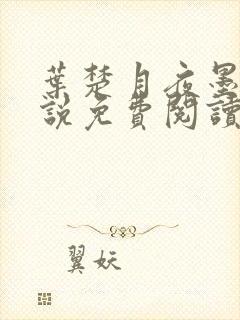 葉楚月夜墨
說免費閱讀
翼妖